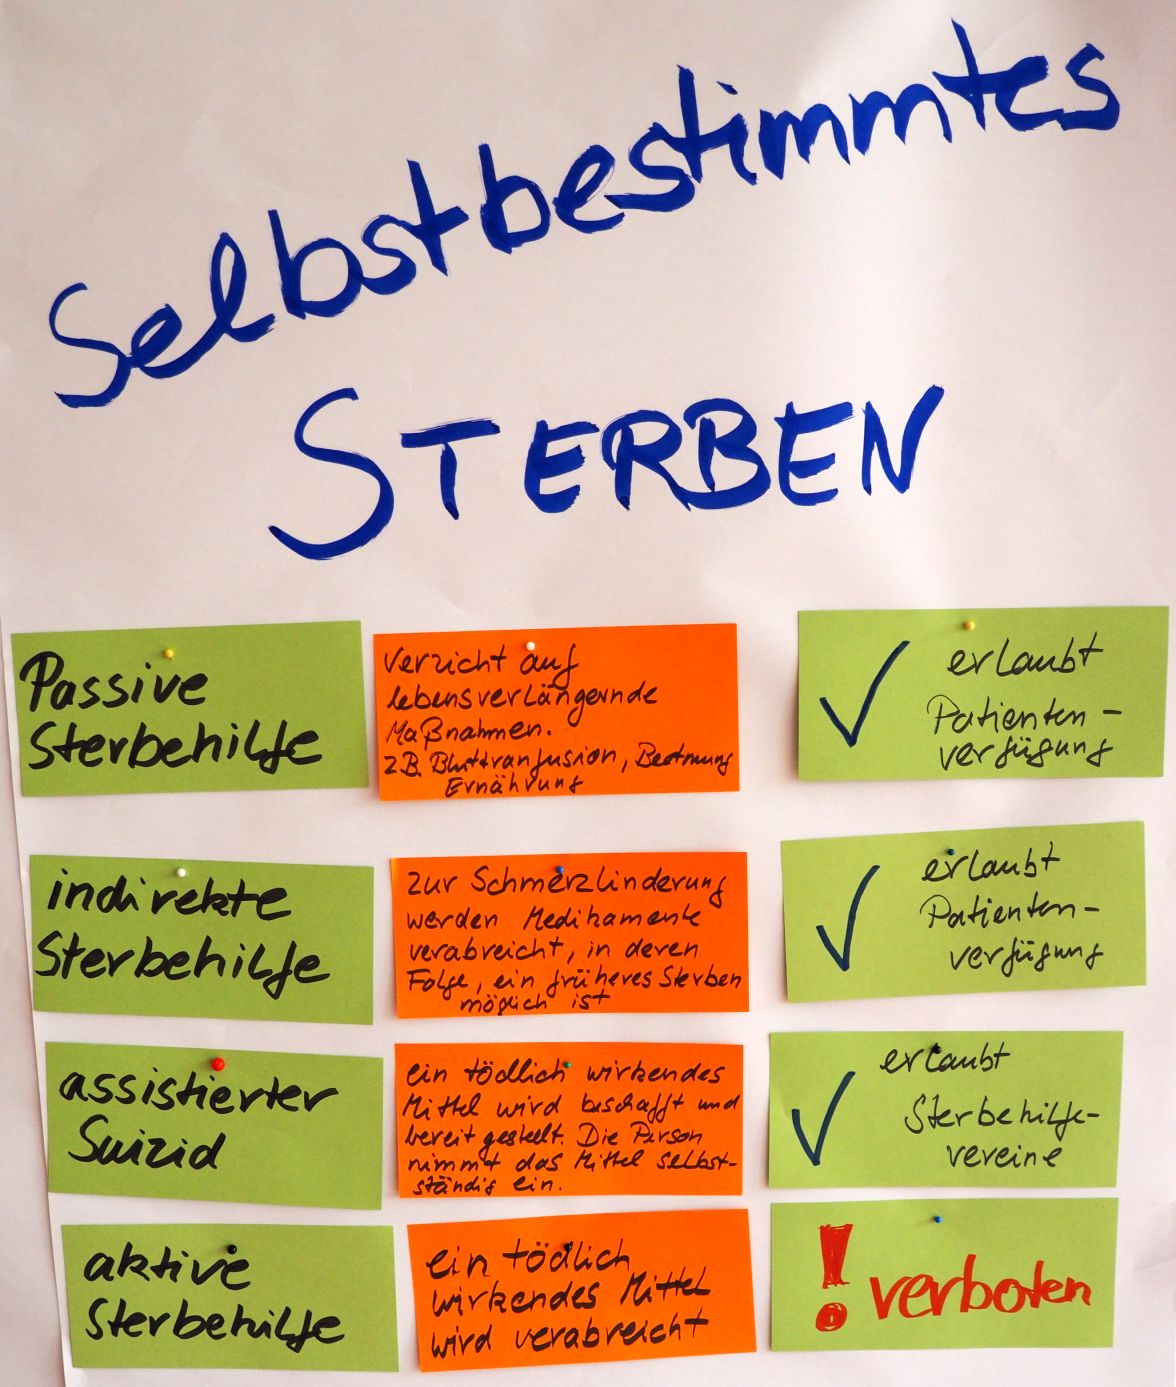 Selbstbestimmtes
STERBEN
Passive
Sterbehilfe
Verzicht auf
lebensverlängernde
Maßnahmen.
z.B. Bluttranfusion, Beatmung
Ernährung
✓ erlaubt
Patienten-
verfügung
indirekte
Sterbehilfe
zur Schmerzlinderung
werden Medikamente
verabreicht, in deren
Folge, ein früheres Sterben
möglich ist
✓ erlaubt
Patienten-
verfügung
assistierter
Suizid
ein tödlich wirkendes
Mittel wird beschafft und
bereit gestellt. Die Person
nimmt das Mittel selbst-
ständig ein.
✓ erlaubt
Sterbehilfe-
vereine
aktive
Sterbehilfe
ein tödlich
wirkendes Mittel
wird verabreicht
! verboten